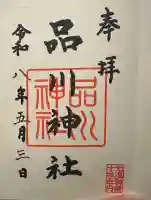 奉拝
品川神社
品川神社
令和八年五月三日